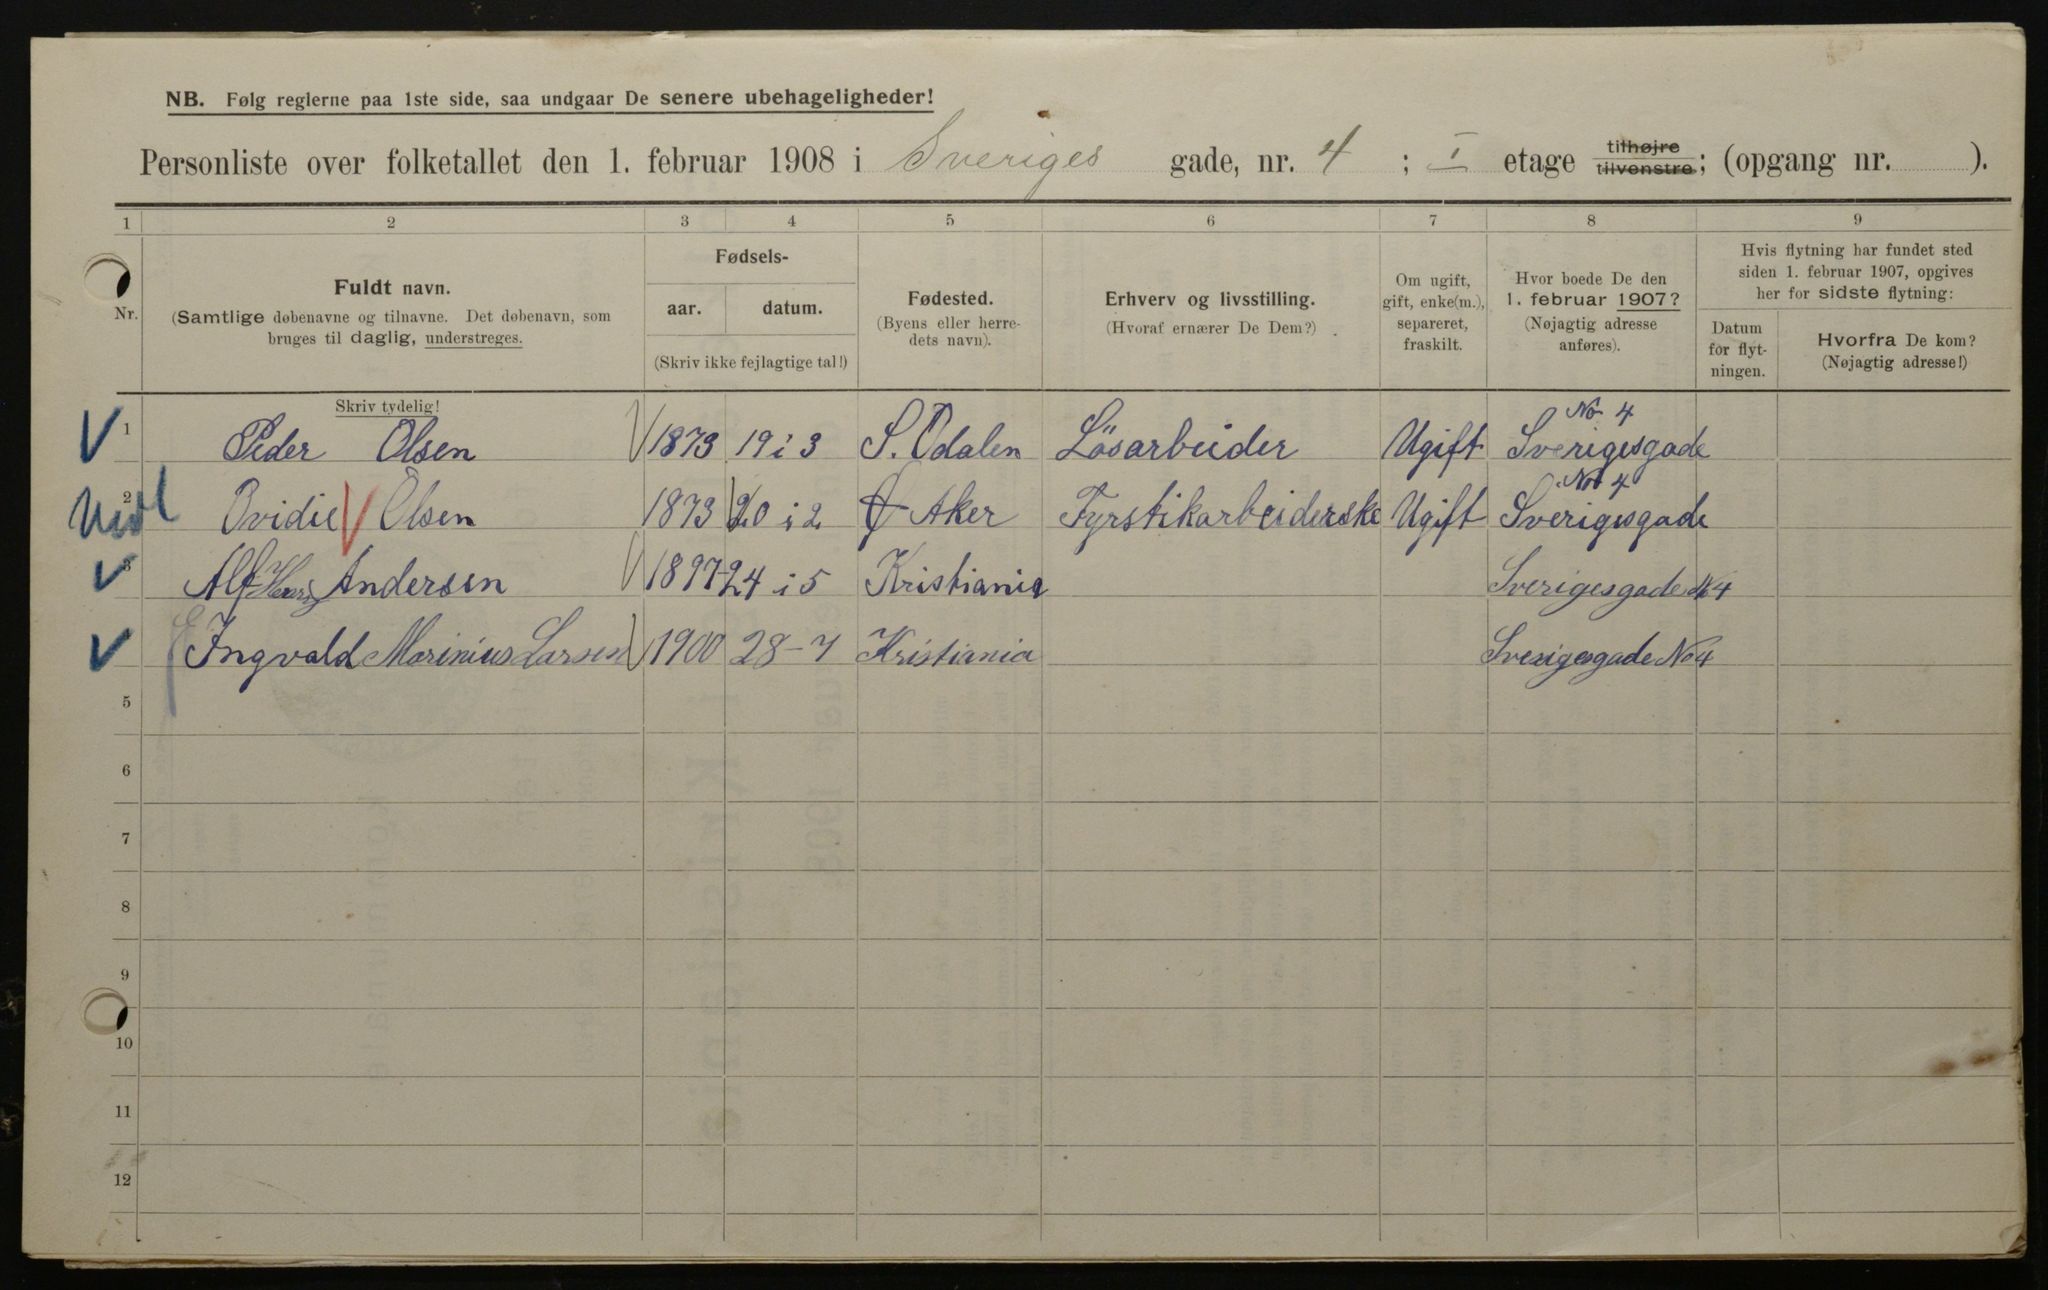 NB. Følg reglerne paa 1ste side, saa undgaar De senere ubehageligheder!
Personliste over folketallet den 1. februar 1908 i Sveriges gade, nr. 4 ; I etage tilhøjre tilvenstre; (opgang nr. ).
1 2 3 4 5 6 7 8 9
Nr.
Fuldt navn.
(Samtlige døbenavne og tilnavne. Det døbenavn, som
bruges til daglig, understreges.
Skriv tydelig!
Fødsels-
aar. datum.
(Skriv ikke fejlagtige tal!)
Fødested.
(Byens eller herre-
dets navn).
Erhverv og livsstilling.
(Hvoraf ernærer De Dem?)
Om ugift,
gift, enke(m.),
separeret,
fraskilt.
Hvor boede De den
1. februar 1907?
(Nøjagtig adresse
anføres).
Hvis flytning har fundet sted
siden 1. februar 1907, opgives
her for sidste flytning:
Datum
for flyt-
ningen.
Hvorfra De kom?
(Nøjagtig adresse!)
1 Peder Olsen 1873 19 i 3 S. Odalen Løsarbeider Ugift Sverigesgade No 4
2 Ovidie Olsen 1873 20 i 2 Aker Fyrstikarbeiderske Ugift Sverigesgade No 4
3 Alf Andersen 1897 24 i 5 Kristiania Sverigesgade No 4
Ingvald Marinius Larsen 1900 28-7 Kristiania Sverigesgade No 4
5
6
7
8
9
10
11
12